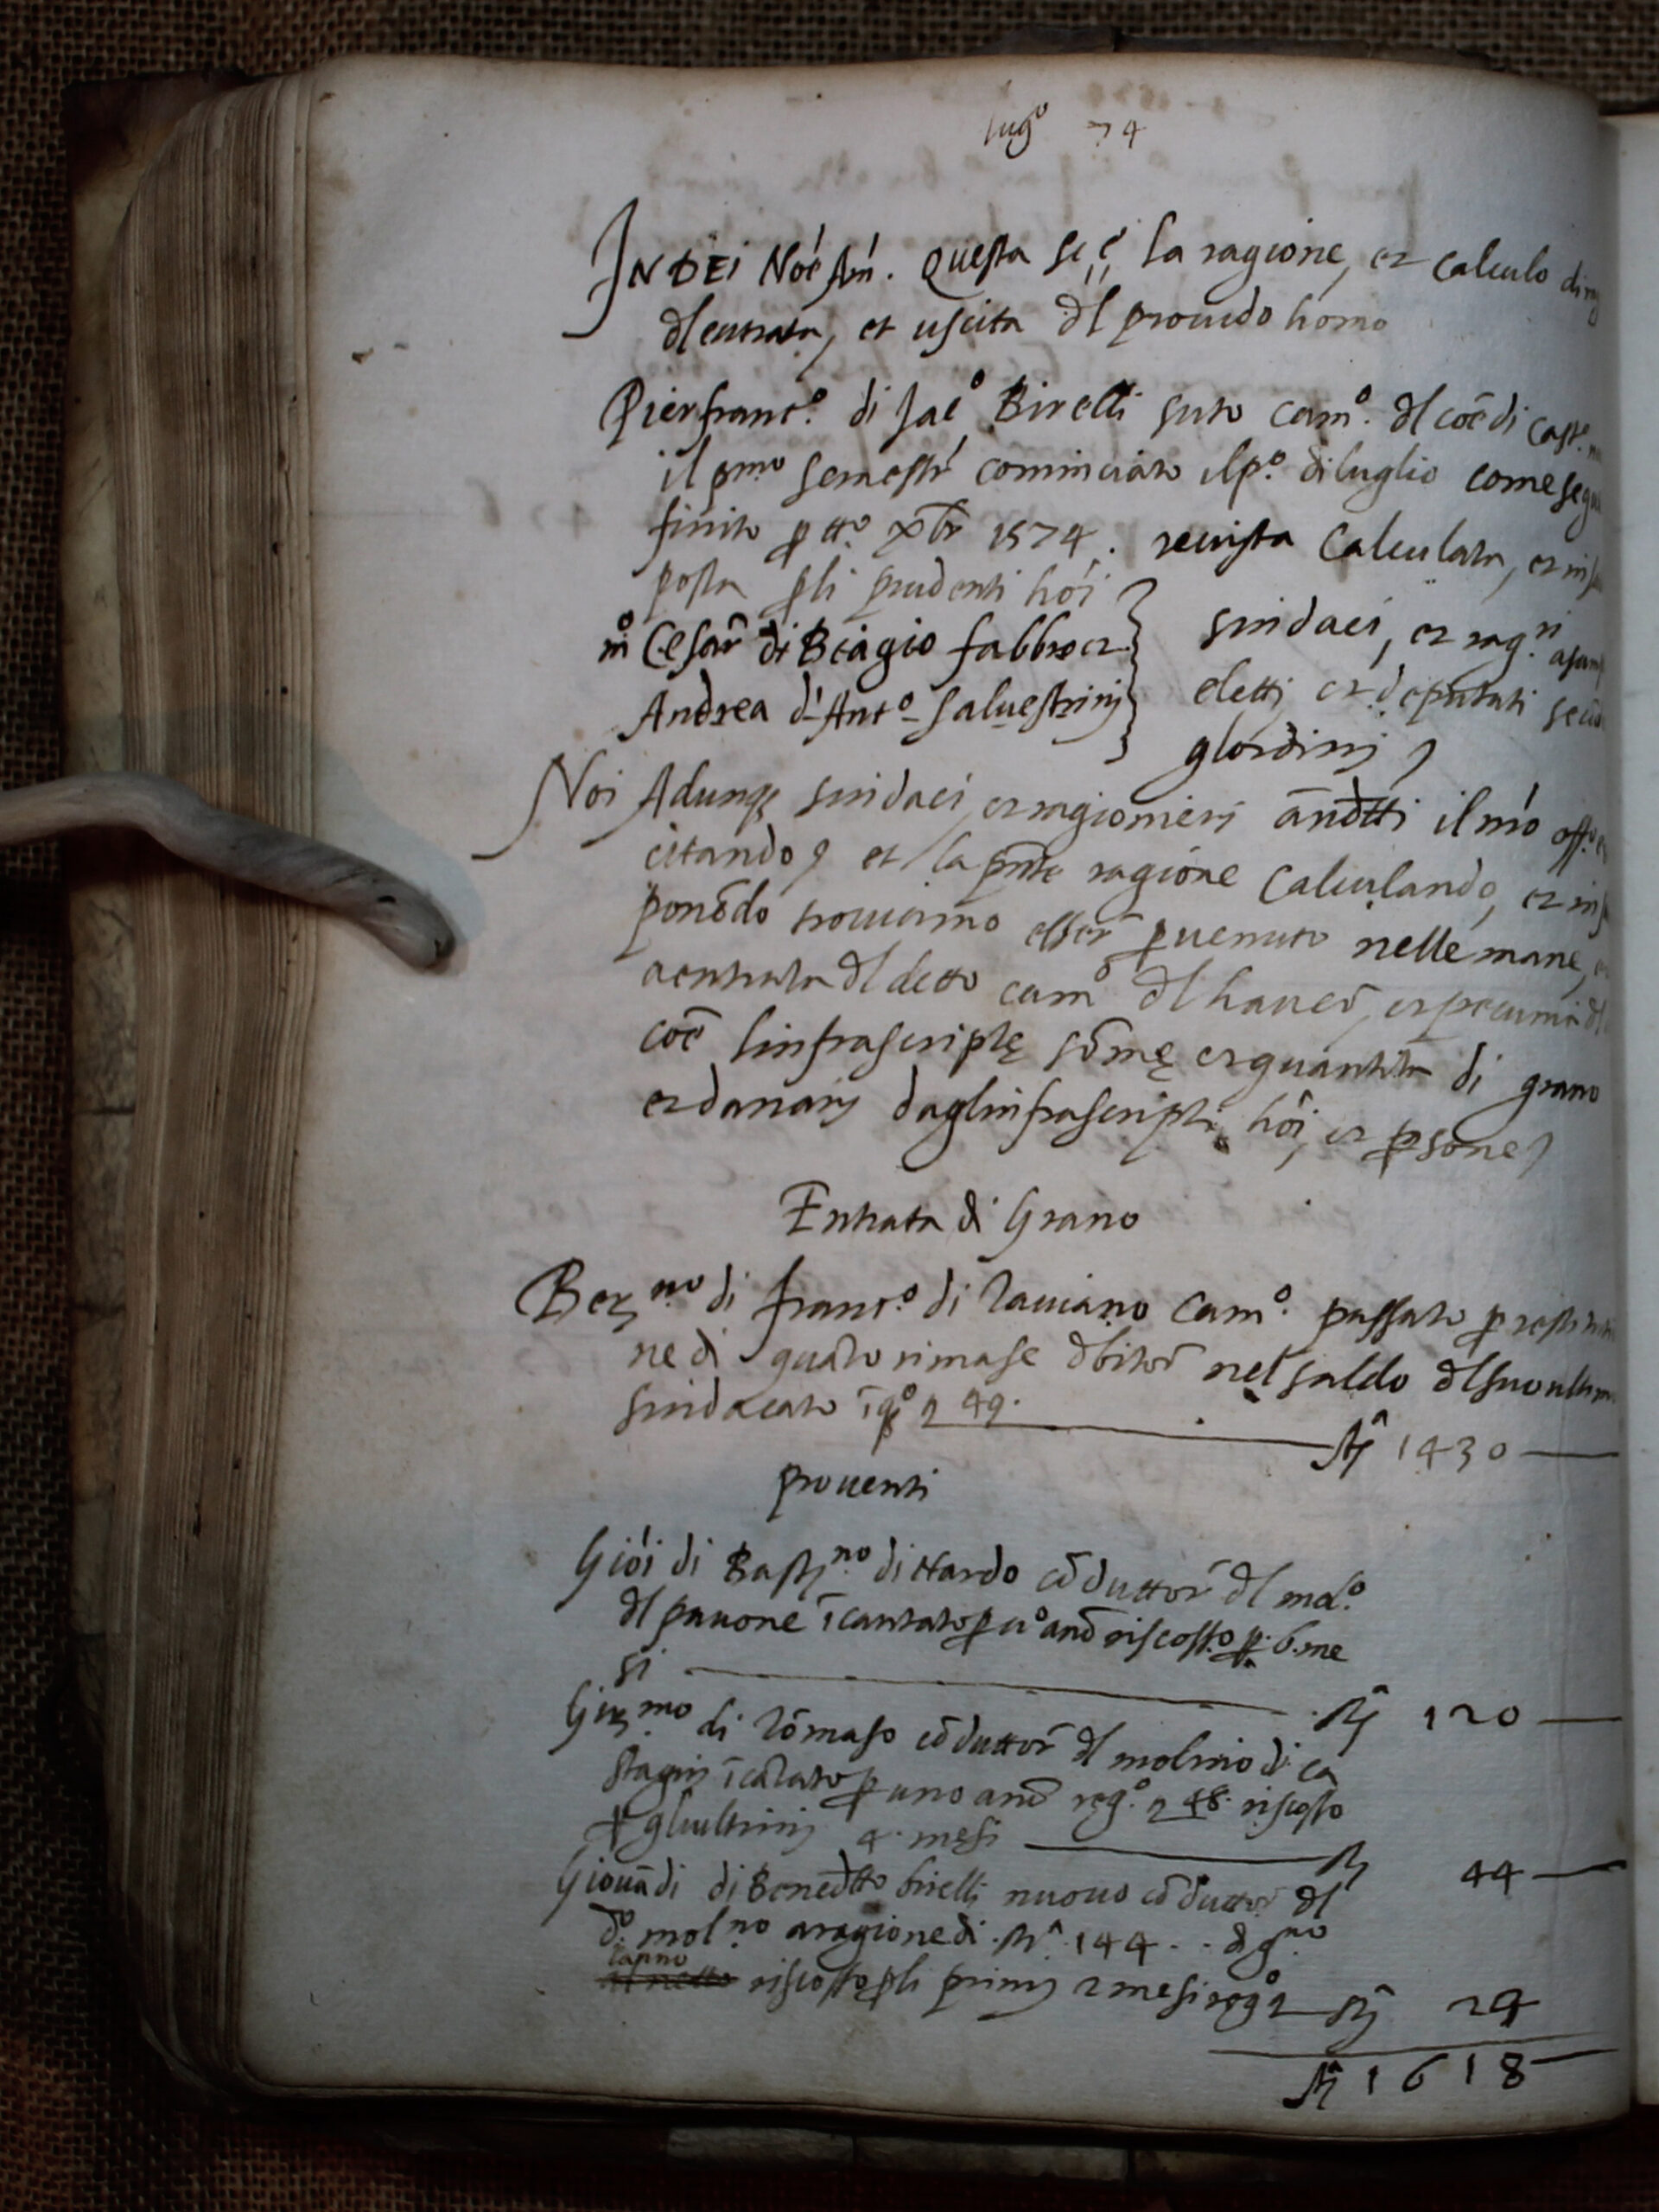 lugo 74
IN DEI Noe Am. Questa si è la ragione, et calculo di
dl entrata, et uscita dl prouido homo
Pierfranco. di Jaco Birelli suto camo. dl coe di Casto
il pmo semestr cominciato il po. di luglio come segu
finito p tto xbr 1574. reuista calculata, et in
posta pli prudenti hoi
mo Cesar di Biagio fabbro et } sindaci, et ragri
Andrea d Anto Saluestrinj } eletti et deputati seco
glordinj
Noi Adunq sindaci et ragionieri andtti il nro offo
citando et la pnte ragione calculando, et in
ponedo trouiamo esser puenuto nelle mane,
aentrata dl detto camo dl hauer, et pecunia dl
coe linfrascripte some et quantita di grano
et danarj daglinfrascripti hoi, et psone
Entrata di Grano
Berno di franco. di Tauiano Camo. passato p restituti
ne di quato rimase dbitor nel saldo dl suo ultim
sindacato i qo 49. st 1430
prouenti
Gioi di Bastno di Nardo coduttor dl molo.
dl pauone icantato p uo ano riscosso p. 6. me
si st 120
Girmo di Tomaso coduttor dl molino di ca
stagnj icatato p uno ano rego. 48. riscosso
p gliultimj 4. mesi st 44
Giouadi di Benedtto birelli nuouo coduttor dl
do. molno aragione di st 144. di gno
lanno
riscosso pli primj 2 mesi rego st 24
st 1618